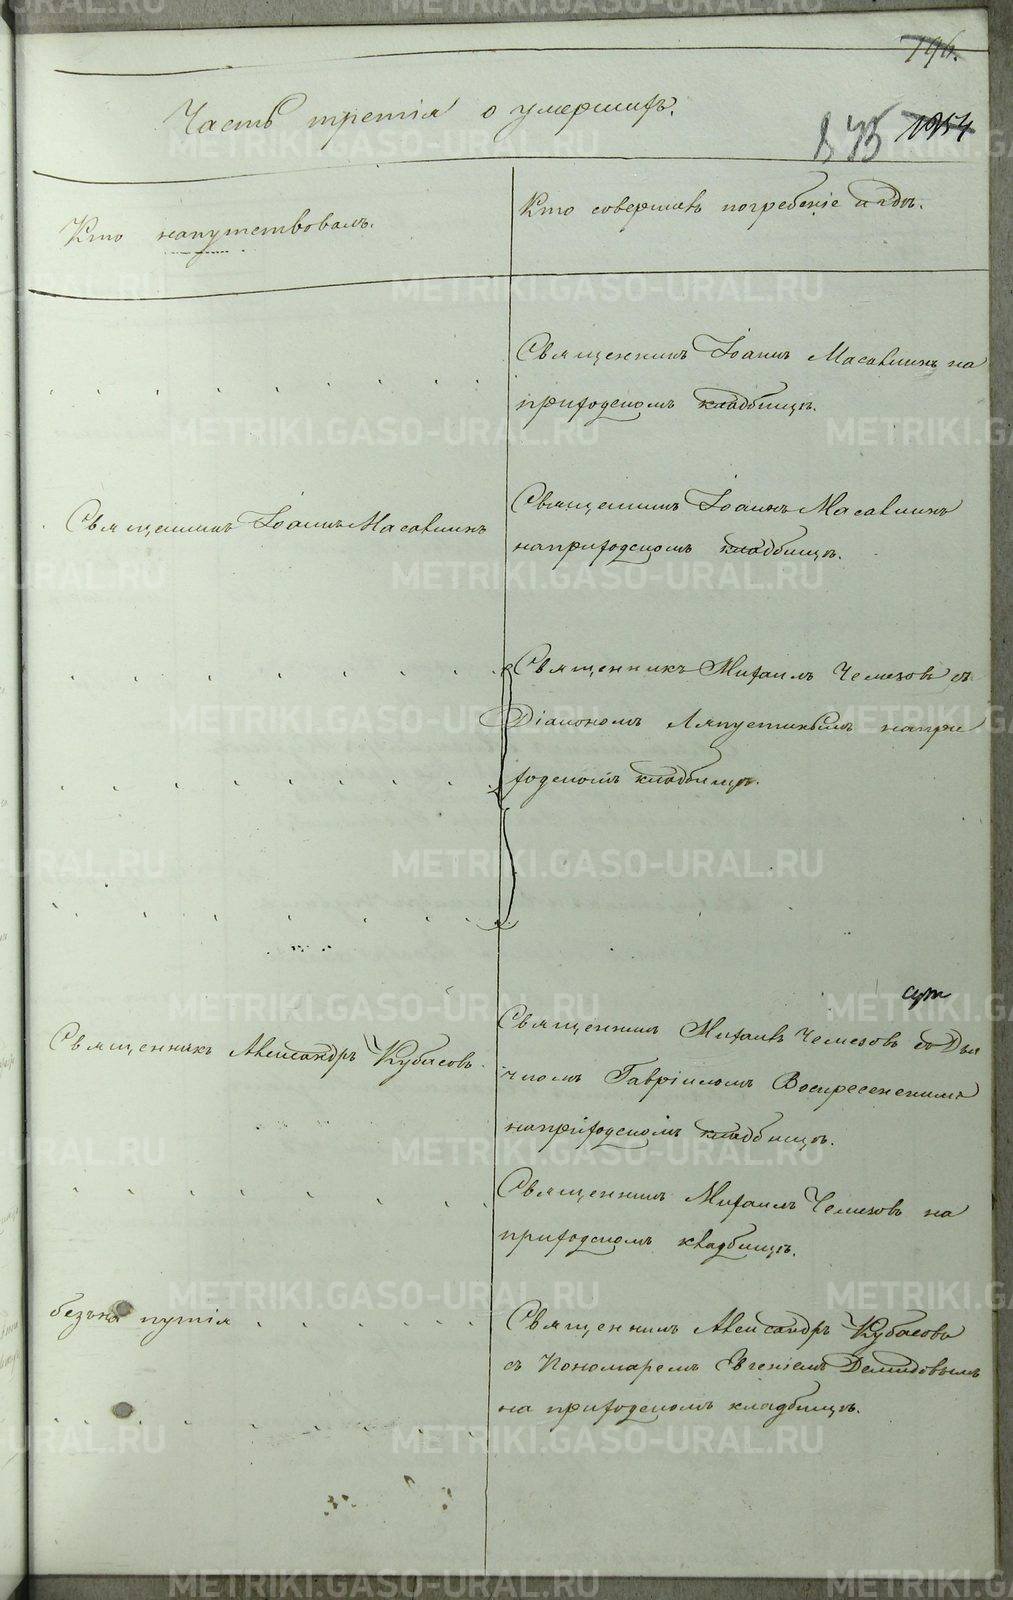 796.
Часть третія о умершихъ.
875 1254
Кто напутствовалъ.
Кто совершалъ погребеніе и гдѣ.
Священникъ Іоаннъ Масалкинъ на
приходскомъ кладбищѣ.
Священникъ Іоаннъ Масалкинъ
Священникъ Іоаннъ Масалкинъ
на приходскомъ кладбищѣ.
Священникъ Михаилъ Чемезовъ съ
Діакономъ Ляпустинымъ на при
ходскомъ кладбищѣ.
Священникъ Александръ Кубасовъ.
Священникъ Михаилъ Чемезовъ съ Дья
чкомъ Гавріиломъ Воскресенскимъ
на приходскомъ кладбищѣ.
Священникъ Михаилъ Чемезовъ на
приходскомъ кладбищѣ.
безъ на путія
Священникъ Александръ Кубасовъ
съ Пономаремъ Евгеніемъ Демидовымъ
на приходскомъ кладбищѣ.
METRIKI.GASO-URAL.RU